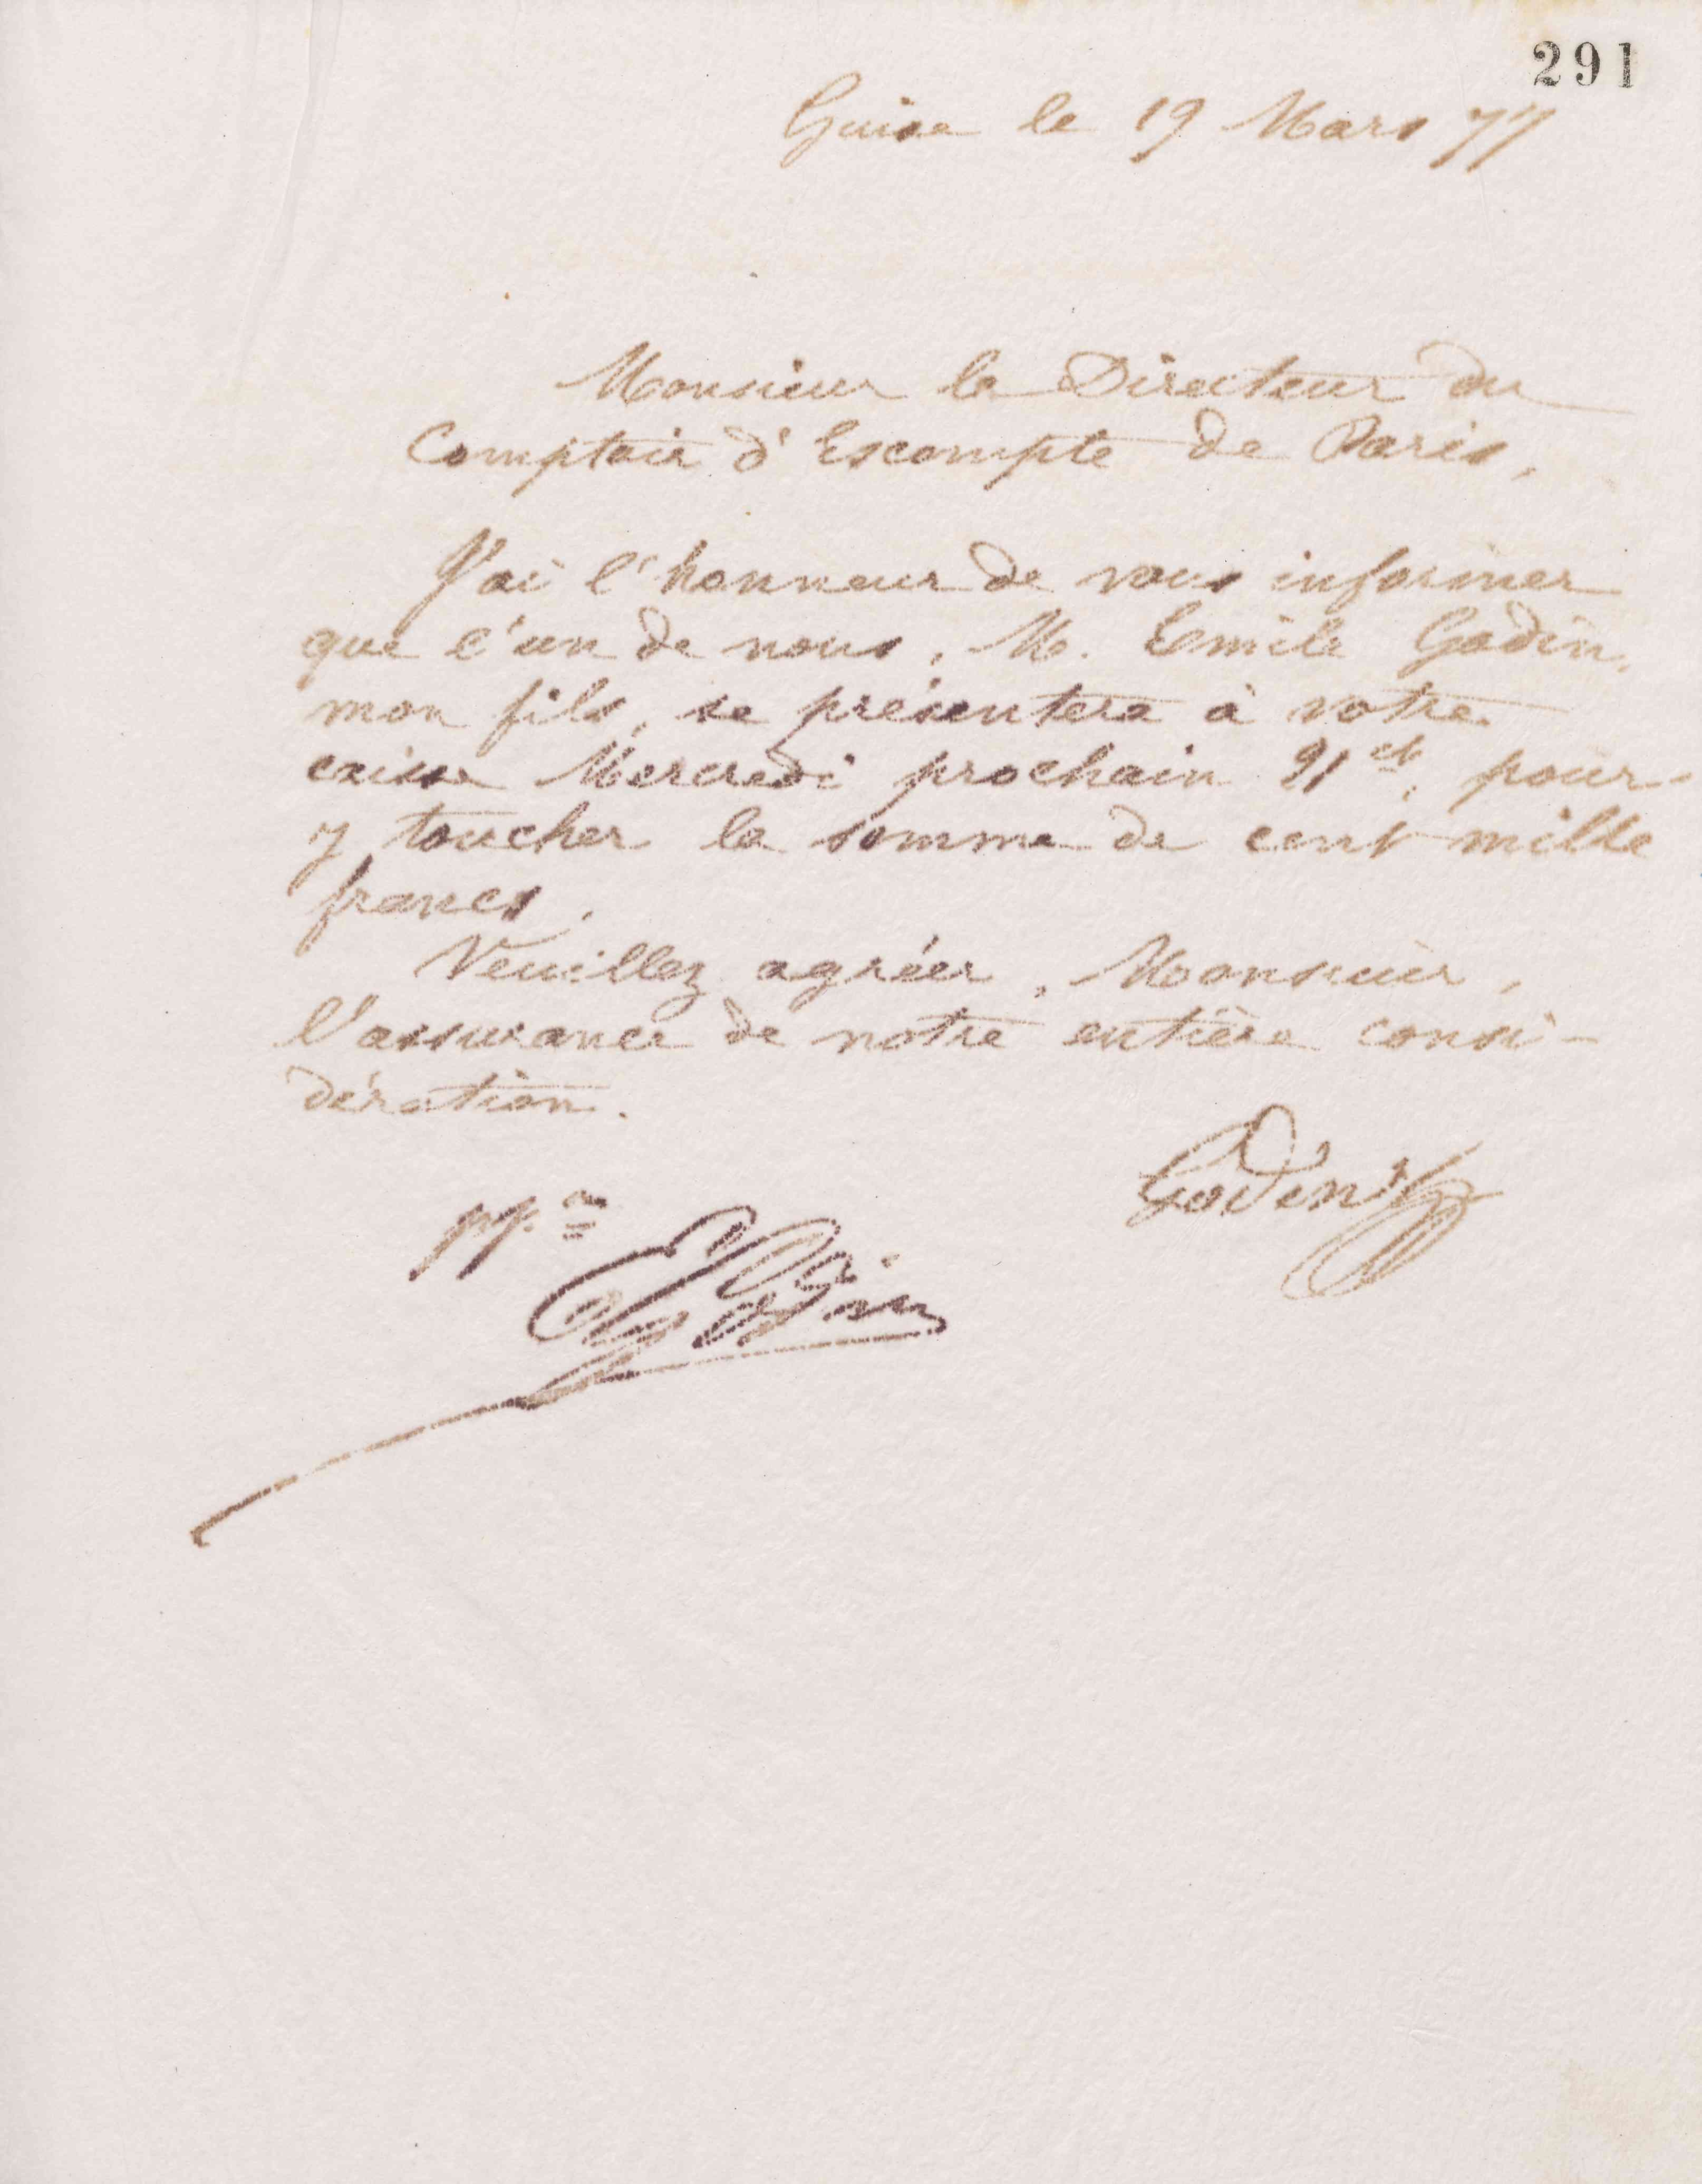 291
Guise le 19 Mars 77
Monsieur le Directeur du
Comptoir d'Escompte de Paris,
J'ai l'honneur de vous informer
que l'un de nous, M. Emile Godin,
mon fils, se présentera à votre
caisse Mercredi prochain 21 ct, pour
y toucher la somme de cent mille
francs.
Veuillez agréer, Monsieur,
l'assurance de notre entière consi-
dération.
Godin
pp.on